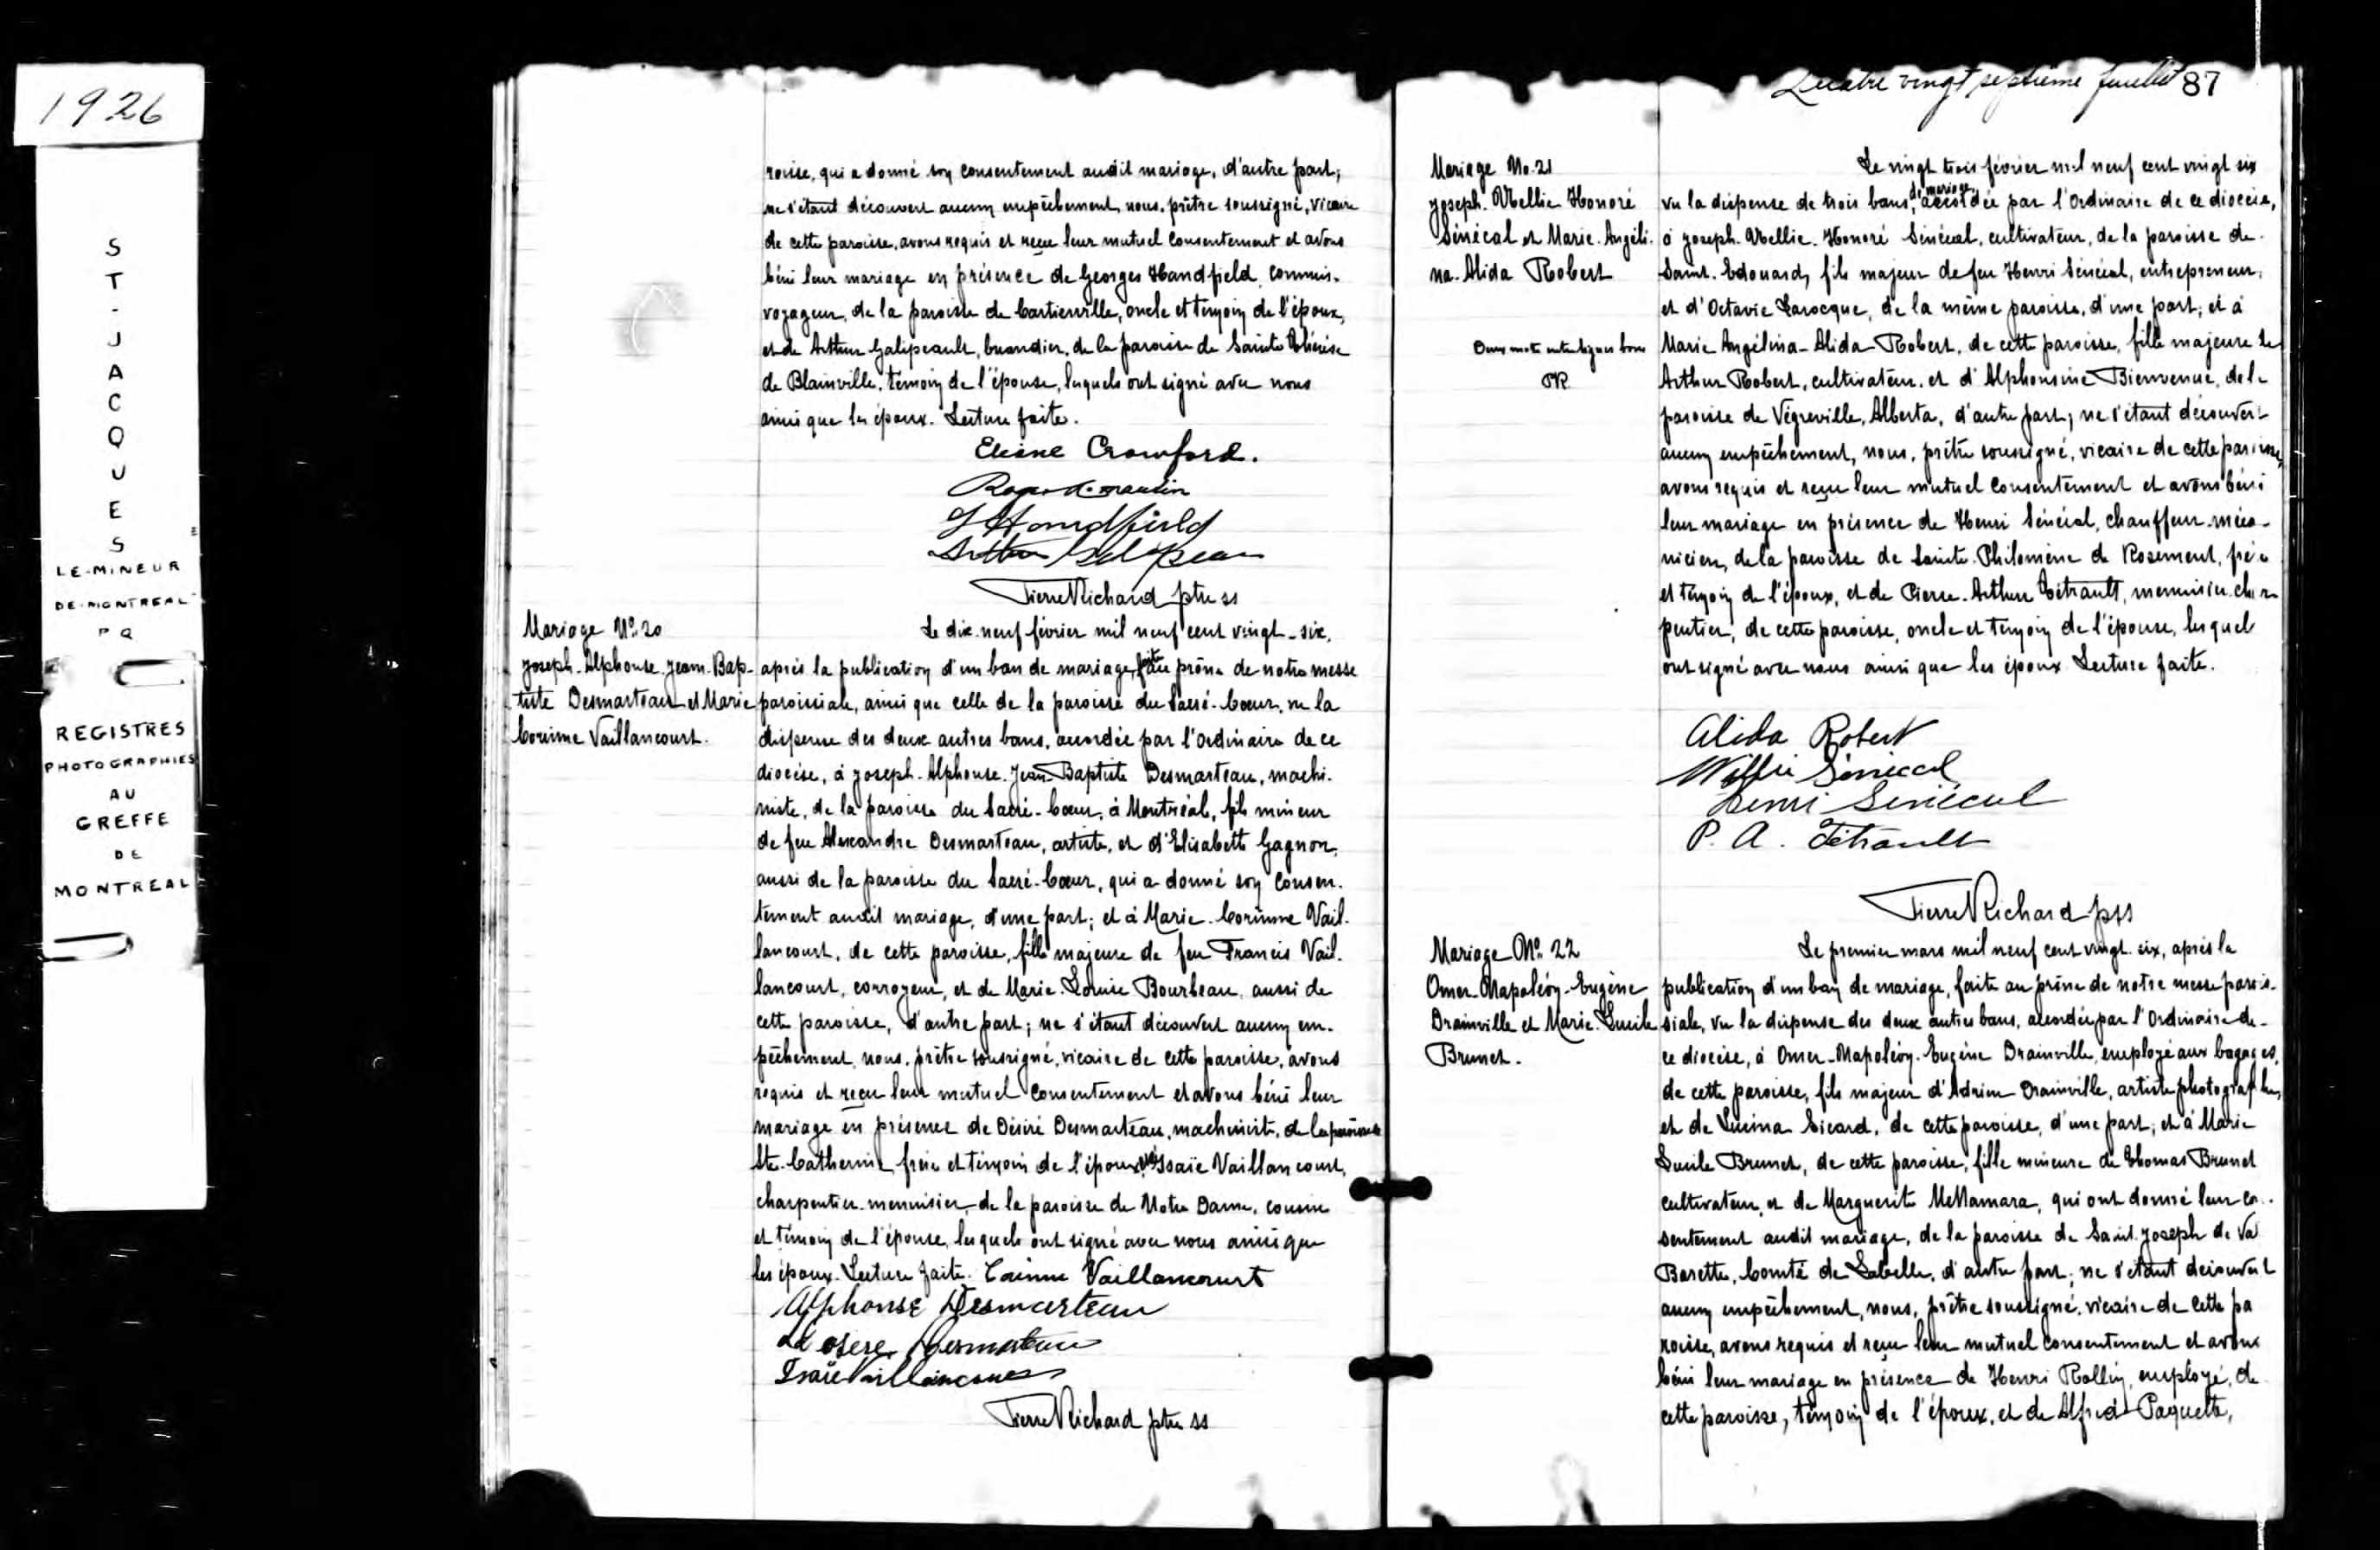 1926
ST-JACQUES
LE-MINEUR
DE-MONTREAL
P Q
REGISTRES
PHOTOGRAPHIES
AU
GREFFE
DE
MONTREAL
roisse, qui a donné son consentement audit mariage, d'autre part;
ne s'étant découvert aucun empêchement, nous, prêtre soussigné, vicaire
de cette paroisse, avons requis et reçu leur mutuel consentement et avons
béni leur mariage en présence de Georges Handfield, commis-
voyageur, de la paroisse de Cartierville, oncle et témoin de l'époux,
et de Arthur Galipeault, buandier, de la paroisse de Sainte Thérèse
de Blainville, témoin de l'épouse, lesquels ont signé avec nous
ainsi que les époux. Lecture faite.
Crawford.
Handfield
Arthur
Pierre Richard ptre ss
Mariage No. 20
Joseph-Alphonse-Jean-Bap-
tiste Desmarteau et Marie
Corinne Vaillancourt.
Le dix-neuf février mil neuf cent vingt-six,
après la publication d'un ban de mariage, faite au prône de notre messe
paroissiale, ainsi que celle de la paroisse du Sacré-Coeur, vu la
dispense des deux autres bans, accordée par l'Ordinaire de ce
diocèse, à Joseph-Alphonse-Jean-Baptiste Desmarteau, machi-
niste, de la paroisse du Sacré-Coeur, à Montréal, fils mineur
de feu Alexandre Desmarteau, artiste, et d'Elisabeth Gagnon,
aussi de la paroisse du Sacré-Coeur, qui a donné son consen-
tement audit mariage, d'une part; et à Marie-Corinne Vail-
lancourt, de cette paroisse, fille majeure de feu Francis Vail-
lancourt, corroyeur, et de Marie-Louise Bourbeau, aussi de
cette paroisse, d'autre part; ne s'étant découvert aucun em-
pêchement, nous, prêtre soussigné, vicaire de cette paroisse, avons
requis et reçu leur mutuel consentement et avons béni leur
mariage en présence de Désiré Desmarteau, machiniste, de la paroisse
Ste-Catherine, frère et témoin de l'époux, et Isaïe Vaillancourt,
charpentier-menuisier, de la paroisse de Notre Dame, cousin
et témoin de l'épouse, lesquels ont signé avec nous ainsi que
les époux. Lecture faite. Corinne Vaillancourt
Alphonse Desmarteau
Desmarteau
Isaïe Vaillancourt
Pierre Richard ptre ss
Quatre vingt septième feuillet 87
Mariage No. 21
Joseph-Wellie-Honoré
Sénécal et Marie-Angéli-
na-Alida Robert
Deux mots entre lignes bons
PR
Le vingt trois février mil neuf cent vingt six
vu la dispense de trois bans, de mariage accordée par l'Ordinaire de ce diocèse,
à Joseph-Wellie-Honoré Sénécal, cultivateur, de la paroisse de
Saint-Edouard, fils majeur de feu Henri Sénécal, entrepreneur,
et d'Octavie Larocque, de la même paroisse, d'une part; et à
Marie Angélina-Alida Robert, de cette paroisse, fille majeure de
Arthur Robert, cultivateur, et d'Alphonsine Bienvenue, de la
paroisse de Végreville, Alberta, d'autre part; ne s'étant découvert
aucun empêchement, nous, prêtre soussigné, vicaire de cette paroisse,
avons requis et reçu leur mutuel consentement et avons béni
leur mariage en présence de Henri Sénécal, chauffeur-méca-
nicien, de la paroisse de Sainte-Philomène de Rosemont, frère
et témoin de l'époux, et de Pierre-Arthur Tétrault, menuisier-char-
pentier, de cette paroisse, oncle et témoin de l'épouse, lesquels
ont signé avec nous ainsi que les époux. Lecture faite.
Alida Robert
Wellie Sénécal
Henri Sénécal
P. A. Tétrault
Pierre Richard pss
Mariage No. 22
Omer-Napoléon-Eugène
Drainville et Marie-Lucile
Brunet.
Le premier mars mil neuf cent vingt-six, après la
publication d'un ban de mariage, faite au prône de notre messe parois-
siale, vu la dispense des deux autres bans, accordée par l'Ordinaire de
ce diocèse, à Omer-Napoléon-Eugène Drainville, employé aux bagages,
de cette paroisse, fils majeur d'Adrien Drainville, artiste photographe,
et de Lucina Sicard, de cette paroisse, d'une part; et à Marie
Lucile Brunet, de cette paroisse, fille mineure de Thomas Brunet
cultivateur, et de Marguerite McNamara, qui ont donné leur con-
sentement audit mariage, de la paroisse de Saint-Joseph de Val
Barette, Comté de Labelle, d'autre part; ne s'étant découvert
aucun empêchement, nous, prêtre soussigné, vicaire de cette pa
roisse, avons requis et reçu leur mutuel consentement et avons
béni leur mariage en présence de Henri Rollin, employé, de
cette paroisse, témoin de l'époux, et de Alfred Paquette,